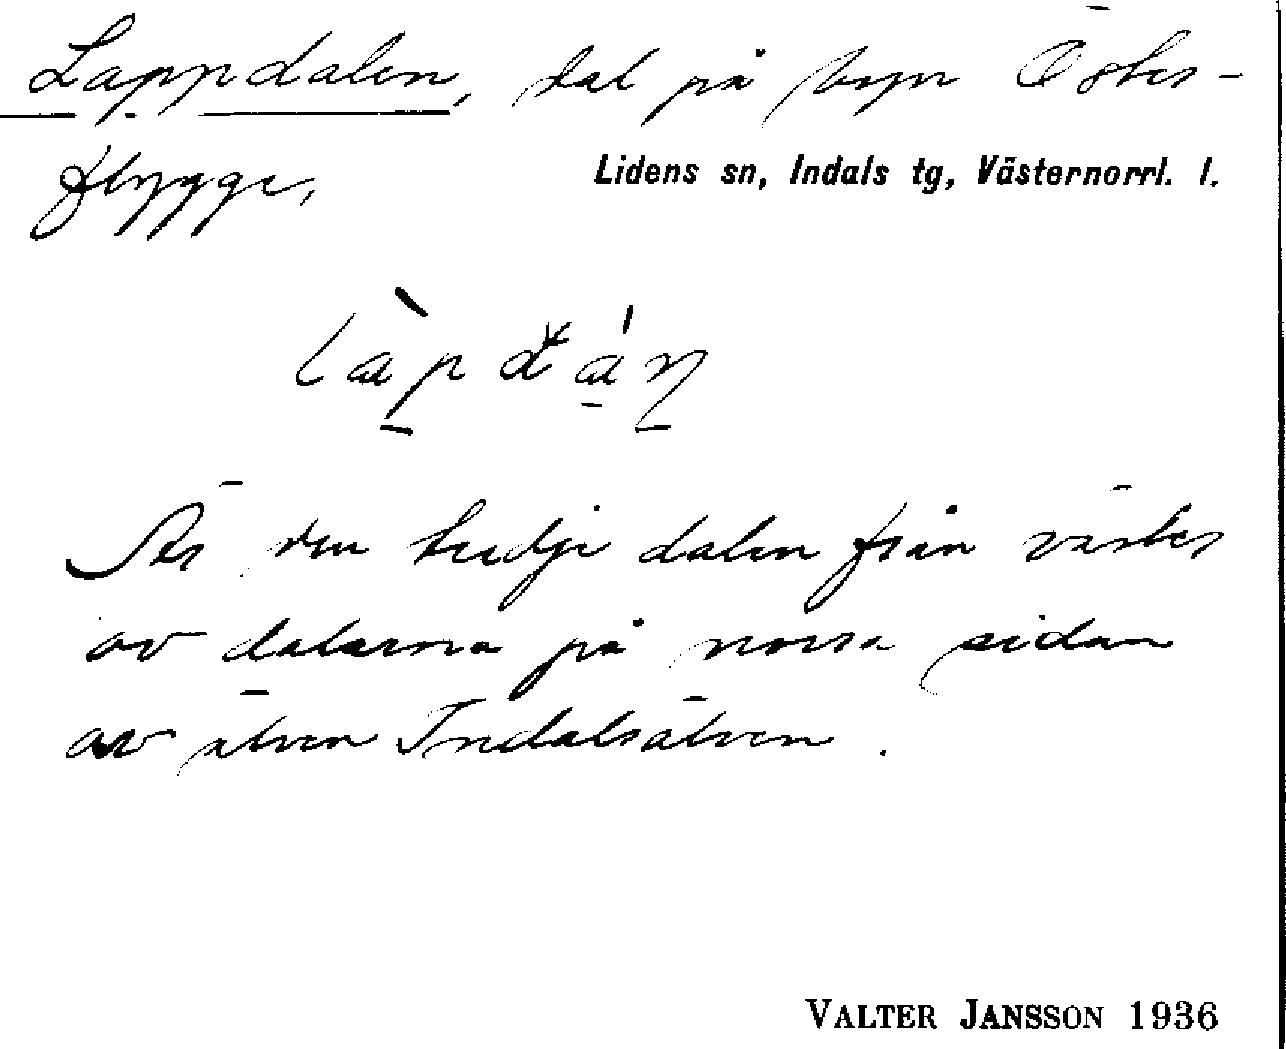 Lappdalen, dal på byn Öster-
flygge,
Lidens sn, Indals tg, Västernorrl. l.
Är den tredje dalen från väster
av dalarna på norra sidan
av älven Indalsälven.
VALTER JANSSON 1936